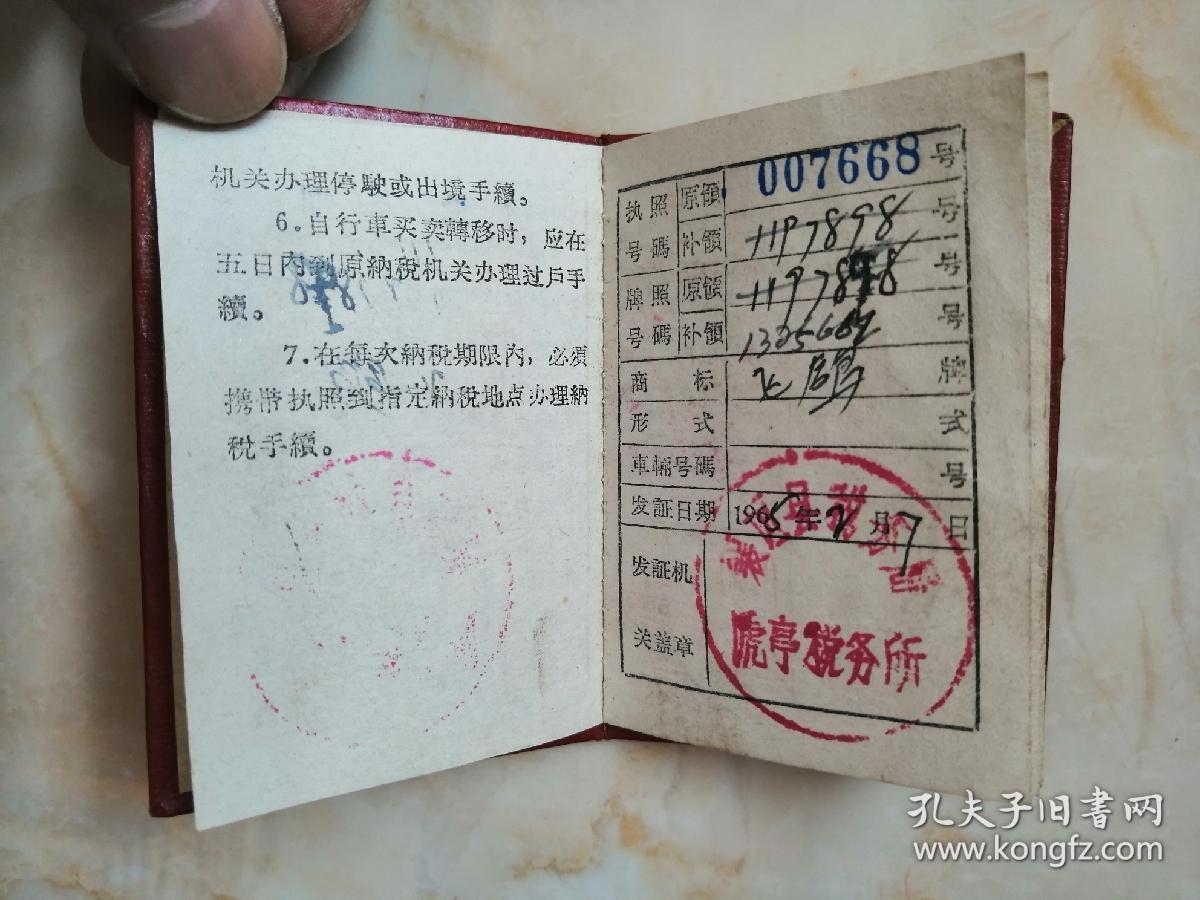 机关办理停駛或出境手續。
6.自行車买卖轉移时,应在
五日內到原納稅机关办理过戶手
續。
7.在每次納稅期限內,必須
携帶执照到指定納稅地点办理納
稅手續。
执照号碼 原領 007668 号
补領 1197898 号
牌照号碼 原領 1197898 号
补領 号
商标 飞鴿 牌
形式 式
車輛号碼 号
发証日期 1965年2月7日
发証机
关盖章
襄垣县税务局
虒亭税务所
孔夫子旧书网
www.kongfz.com